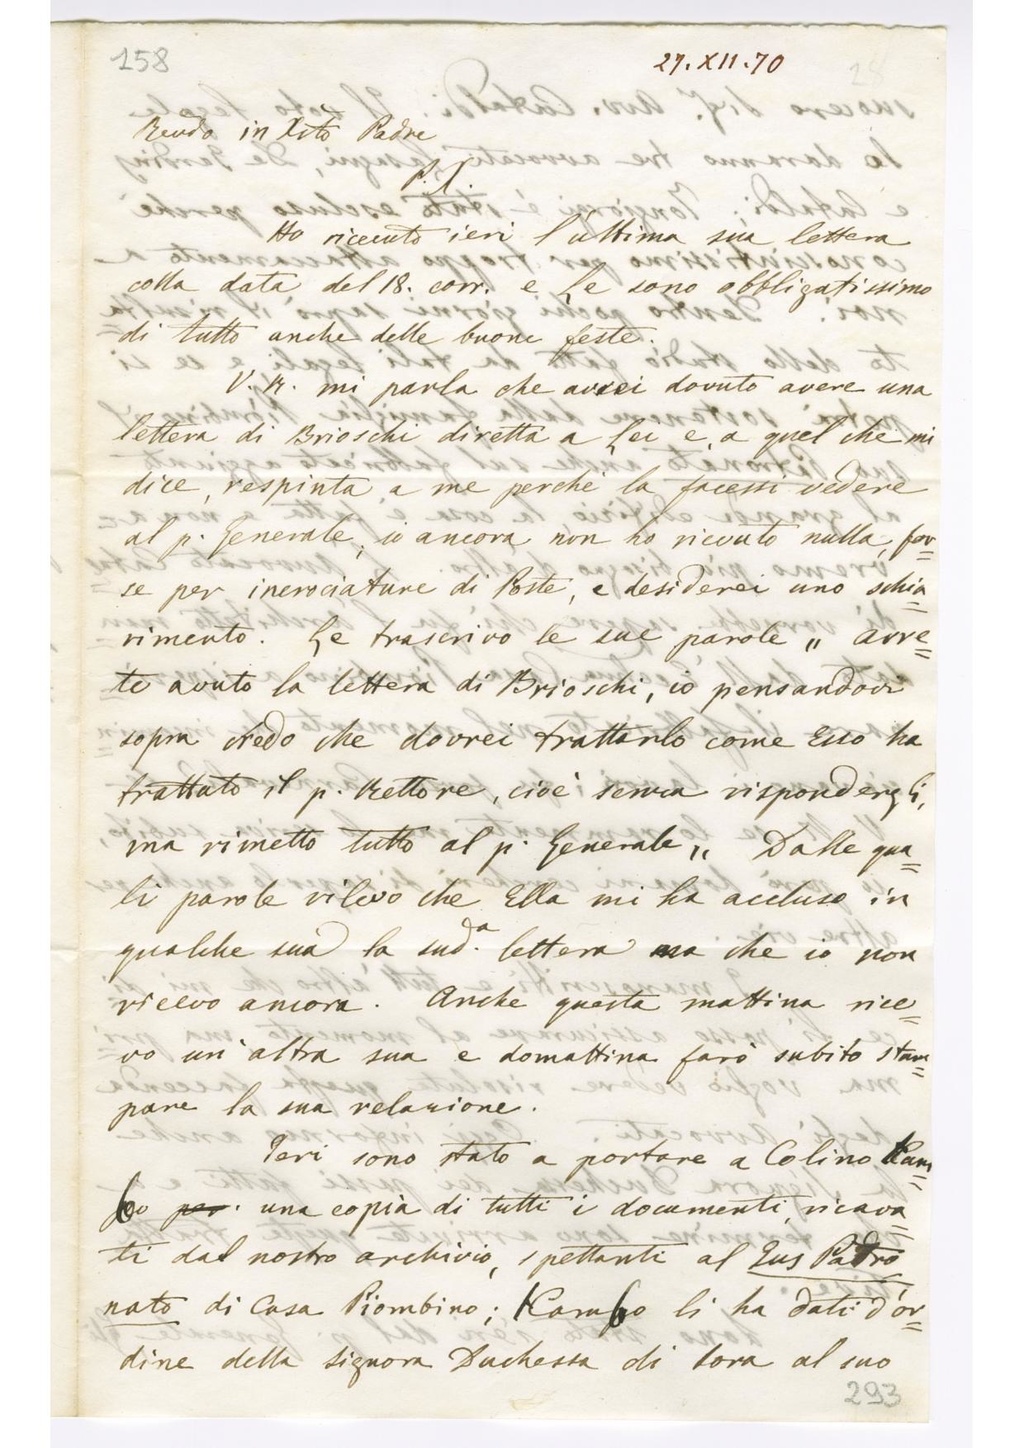 158
27.XII.70
Rendo in Xsto Padre
P. X.
Ho ricevuto ieri l'ultima sua lettera
colla data del 18. corr. e Le sono obbligatissimo
di tutto anche delle buone feste.
V. R. mi parla che avrei dovuto avere una
lettera di Brioschi diretta a Lei e, a quel che mi
dice, respinta a me perchè la facessi vedere
al p. Generale, io ancora non ho ricevuto nulla, for=
se per incrociature di Poste, e desiderei uno schia=
rimento. Le trascrivo le sue parole „ avre=
te avuto la lettera di Brioschi, io pensandovi
sopra credo che dovrei trattarlo come Esso ha
trattato il p. Rettore, cioè senza rispondergli,
ma rimetto tutto al p. Generale „ Dalle qua=
li parole rilevo che Ella mi ha accluso in
qualche sua la sud.a lettera ma che io non
ricevo ancora. Anche questa mattina rice=
vo un'altra sua e domattina farò subito stam=
pare la sua relazione.
Ieri sono stato a portare a Colino Kam=
bo per. una copia di tutti i documenti, ricava=
ti dal nostro archivio, spettanti al Gius Patro
nato di Casa Piombino; Kambo li ha dati d'or=
dine della Signora Duchessa di Sora al suo
293